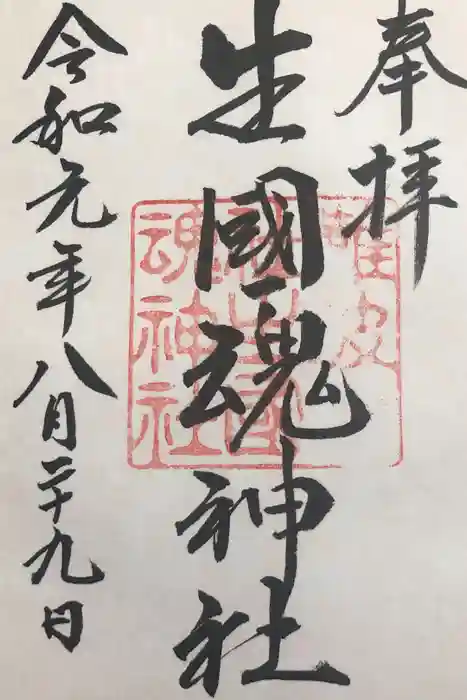 奉拝
生國魂神社
令和元年八月二十九日
難波
魂神社